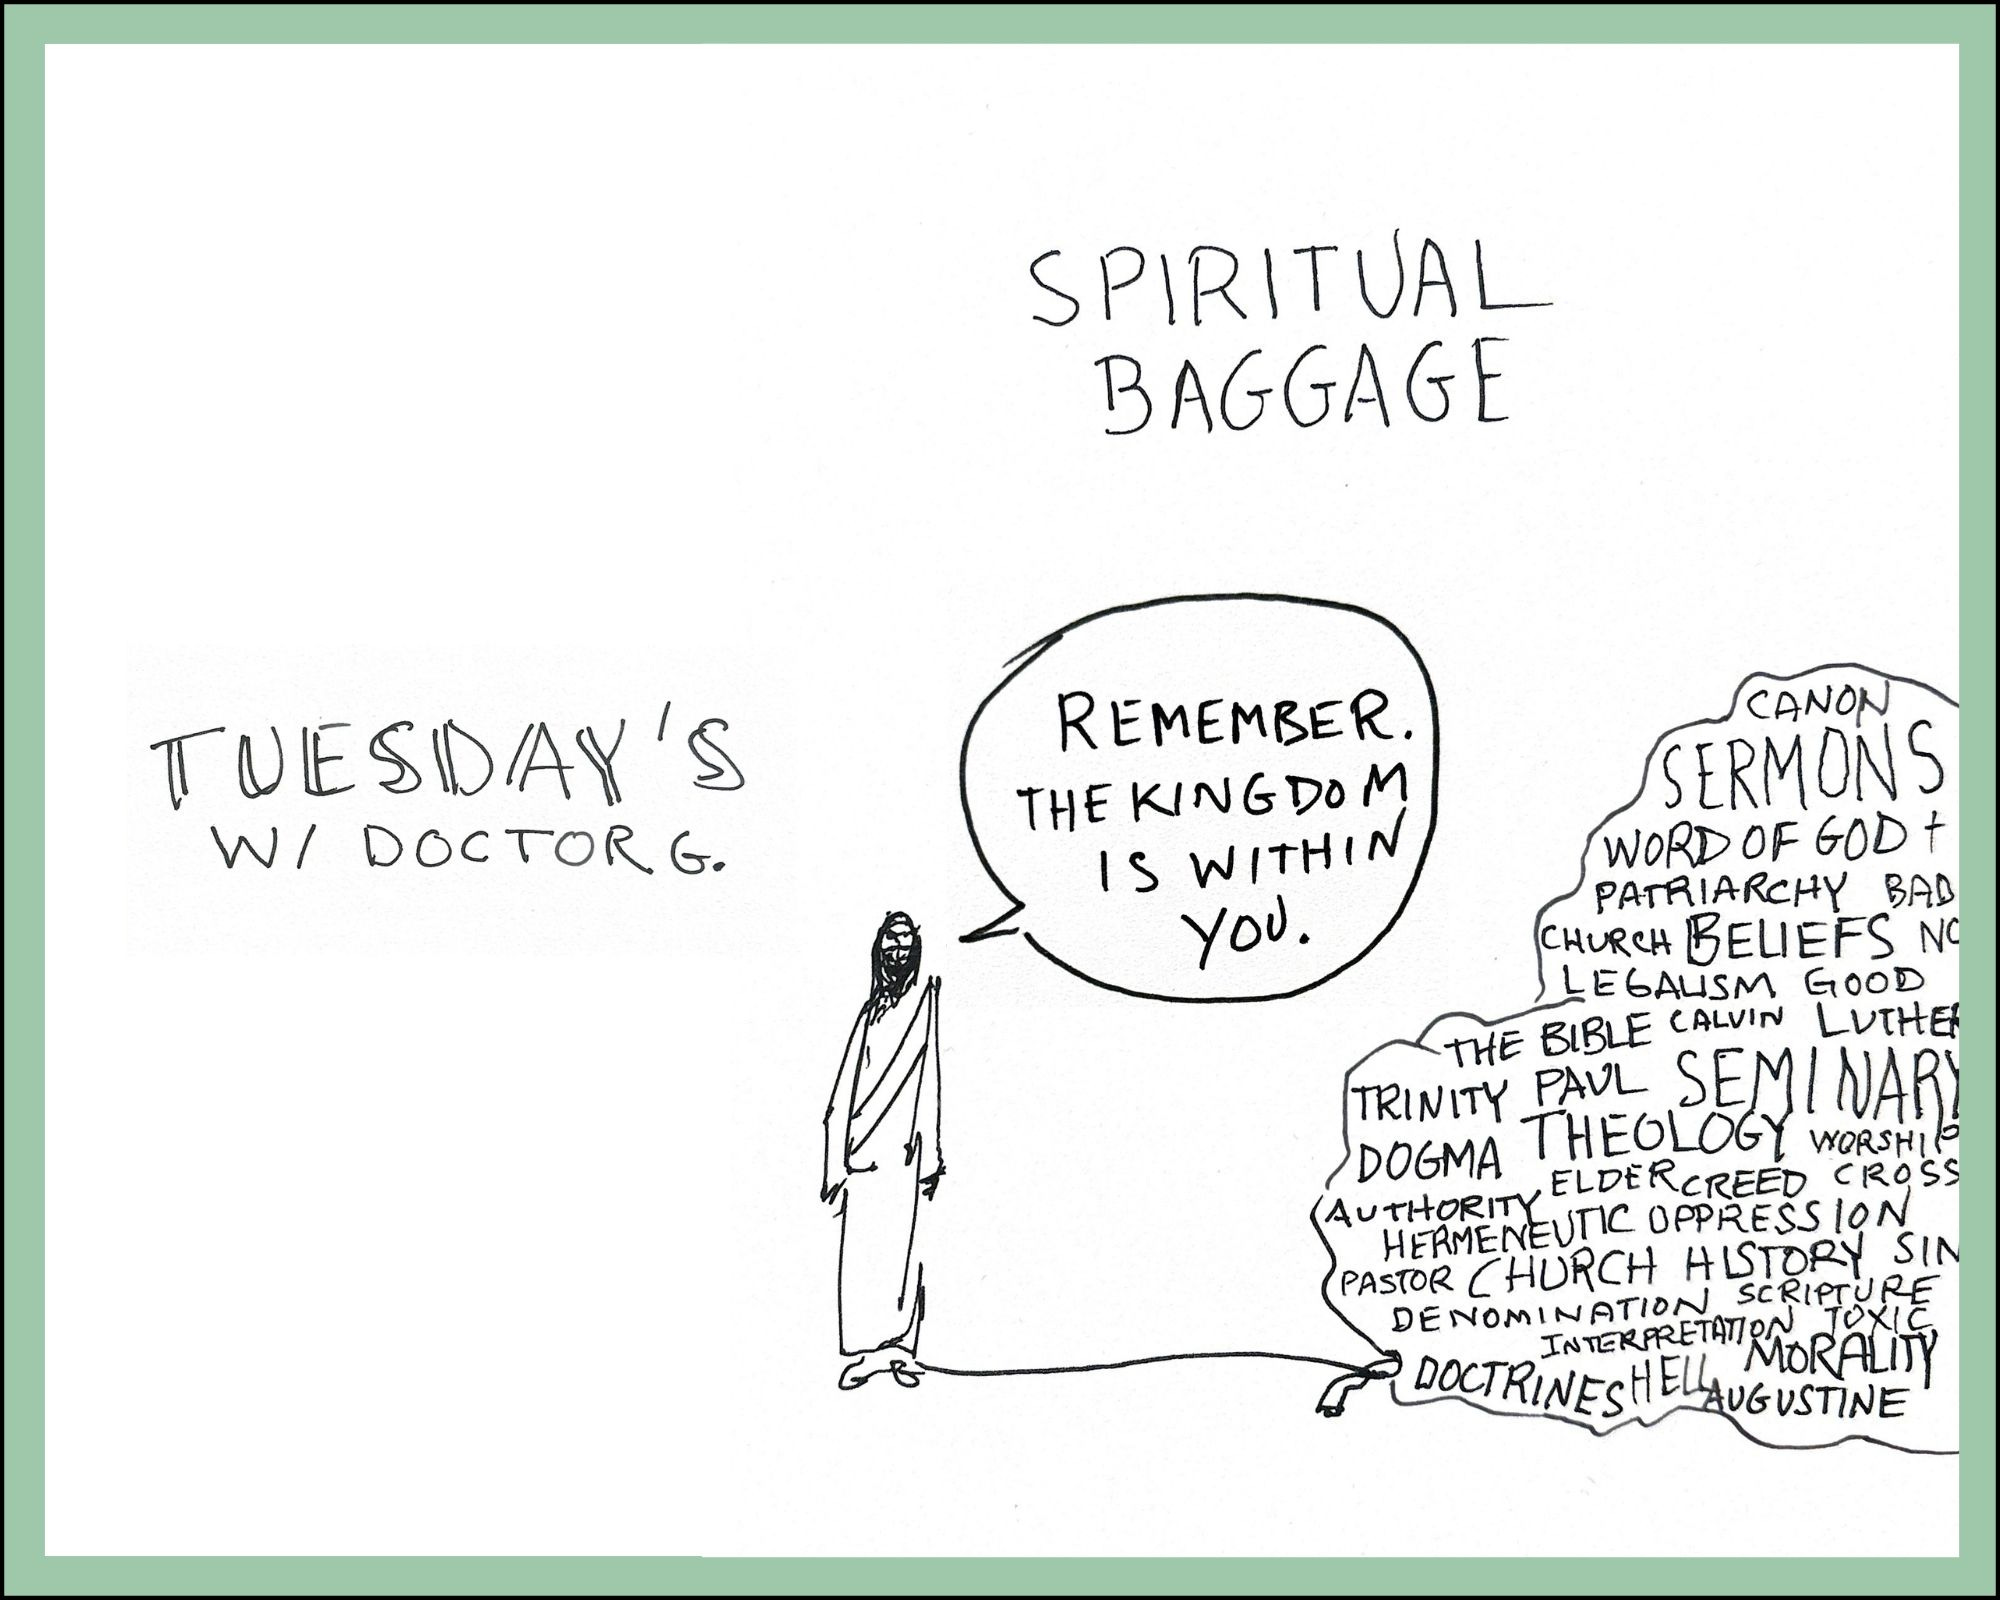 SPIRITUAL
BAGGAGE
TUESDAY'S
W/ DOCTOR G.
REMEMBER.
THE KINGDOM
IS WITHIN
YOU.
CANON
SERMONS
WORD OF GOD +
PATRIARCHY BAD
CHURCH BELIEFS NO
LEGALISM GOOD
THE BIBLE CALVIN LUTHER
TRINITY PAUL SEMINARY
DOGMA THEOLOGY WORSHIP
ELDER CREED CROSS
AUTHORITY
HERMENEUTIC OPPRESSION
PASTOR CHURCH HISTORY SIN
DENOMINATION SCRIPTURE
INTERPRETATION TOXIC
DOCTRINES HELL MORALITY
AUGUSTINE